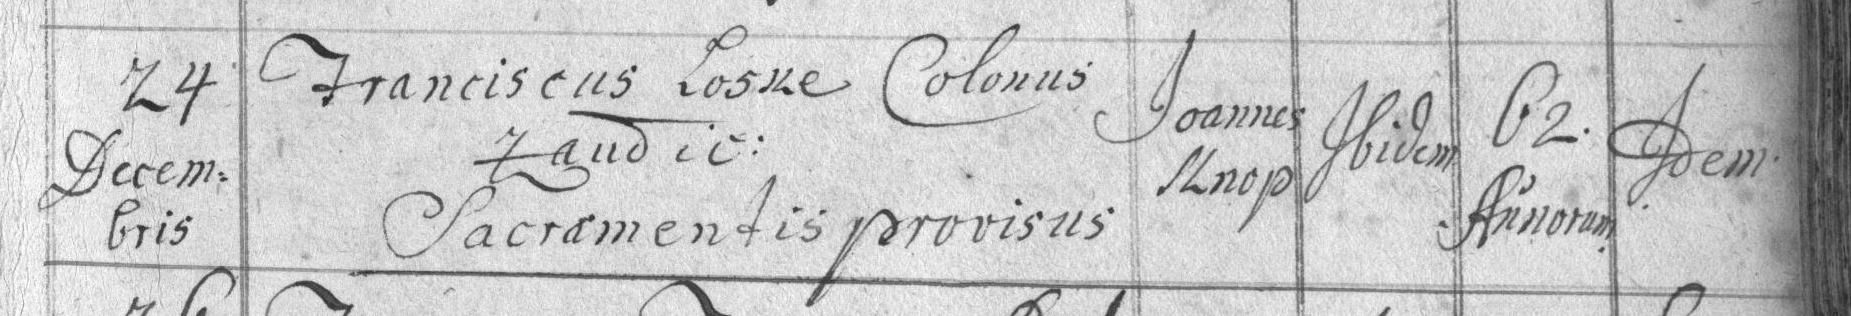 24 Franciscus Loske Colonus
Decem:
bris
Zaudic:
Sacramentis provisus
Joannes
Knop
Ibidem
62.
Annorum
Idem.